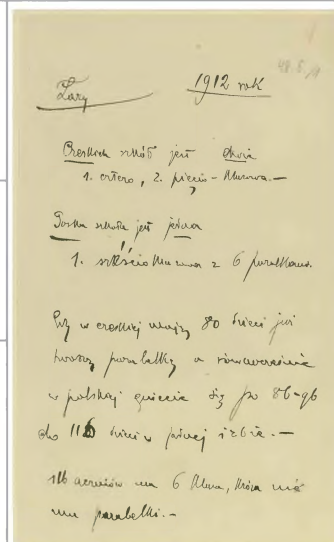 Łazy 1912 rok
Czeskich szkół jest dwie
1. cztero, 2. pięcio-klasowa.—
Polska szkoła jest jedna
1. sześcio klasowa z 6 paralkami.
Gdy w czeskiej mając 80 dzieci już
tworzą paralelkę a równocześnie
w polskiej gniecie się po 86-96
do 116 dzieci w jednej izbie.—
116 uczniów ma 6 klasa, która nie
ma paralelki.—